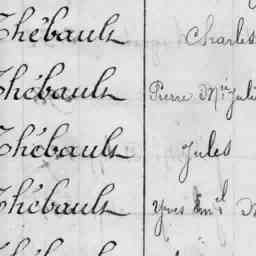 Thébault Charles
Thébault Pierre Mie Juli
Thébault Jules
Thébault Yves Eml
Thébault